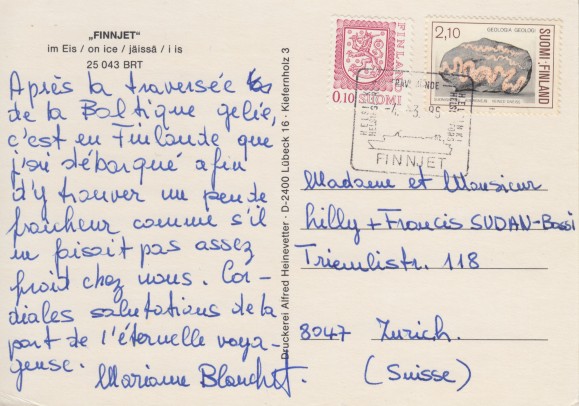 „FINNJET"
im Eis / on ice / jäissä / i is
25 043 BRT
Après la traversée
de la Baltique gelée,
c'est en Finlande que
j'ai débarqué afin
d'y trouver un peu de
fraîcheur comme s'il
ne faisait pas assez
froid chez nous. Cor-
diales salutations de la
part de l'éternelle voya-
geuse.
Marianne Blanchot.
Druckerei Alfred Heinevetter · D-2400 Lübeck 16 · Kiefernholz 3
FINLAND
0.10 SUOMI
2,10
GEOLOGIA GEOLOGI
SUOMI·FINLAND
HELSINKI
FINNJET
Madame et Monsieur
Lilly + Francis SUDAN-Bassi
Triemlistr. 118
8047 Zurich.
(Suisse)